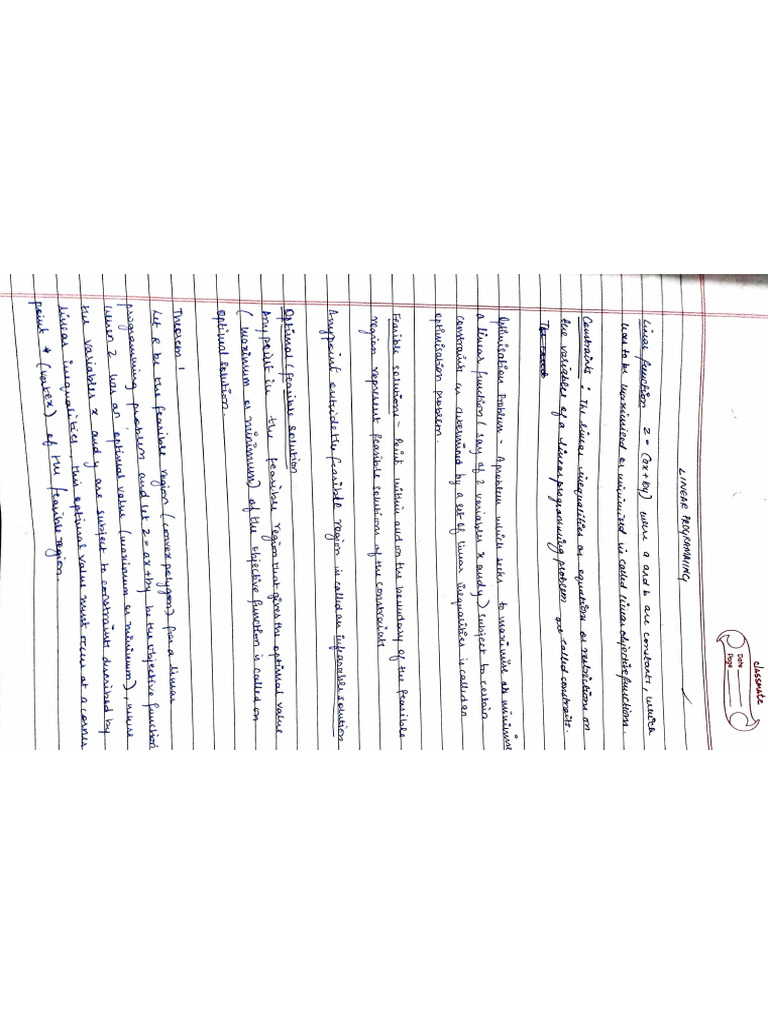 classmate
Date
Page
LINEAR PROGRAMMING
Linear function Z = (ax+by) were a and b are constants, which
has to be maximised or minimized is called linear objective function.
Constraints : The linear inequalities or equations or restrictions on
the variables of a linear programming problem are called constraints.
Optimisation Problem - A problem which seeks to maximise or minimise
a linear function (say of 2 variables x and y) subject to certain
constraints as determined by a set of linear inequalities is called an
optimisation problem.
Feasible solution - Point within and on the boundary of the feasible
region represent feasible solutions of the constraints
Any point outside the feasible region is called an infeasible solution
Optimal (feasible solution
Any point in the feasible region that gives the optimal value
(maximum or minimum) of the objective function is called on
optimal solution.
Theorem 1
Let R be the feasible region (convex polygon) for a linear
programming problem and let Z = ax+by be the objective function
when Z has an optimal value (maximum or minimum), where
the variables x and y are subject to constraints described by
linear inequalities this optimal value must occur at a corner
point (vertex) of the feasible region.